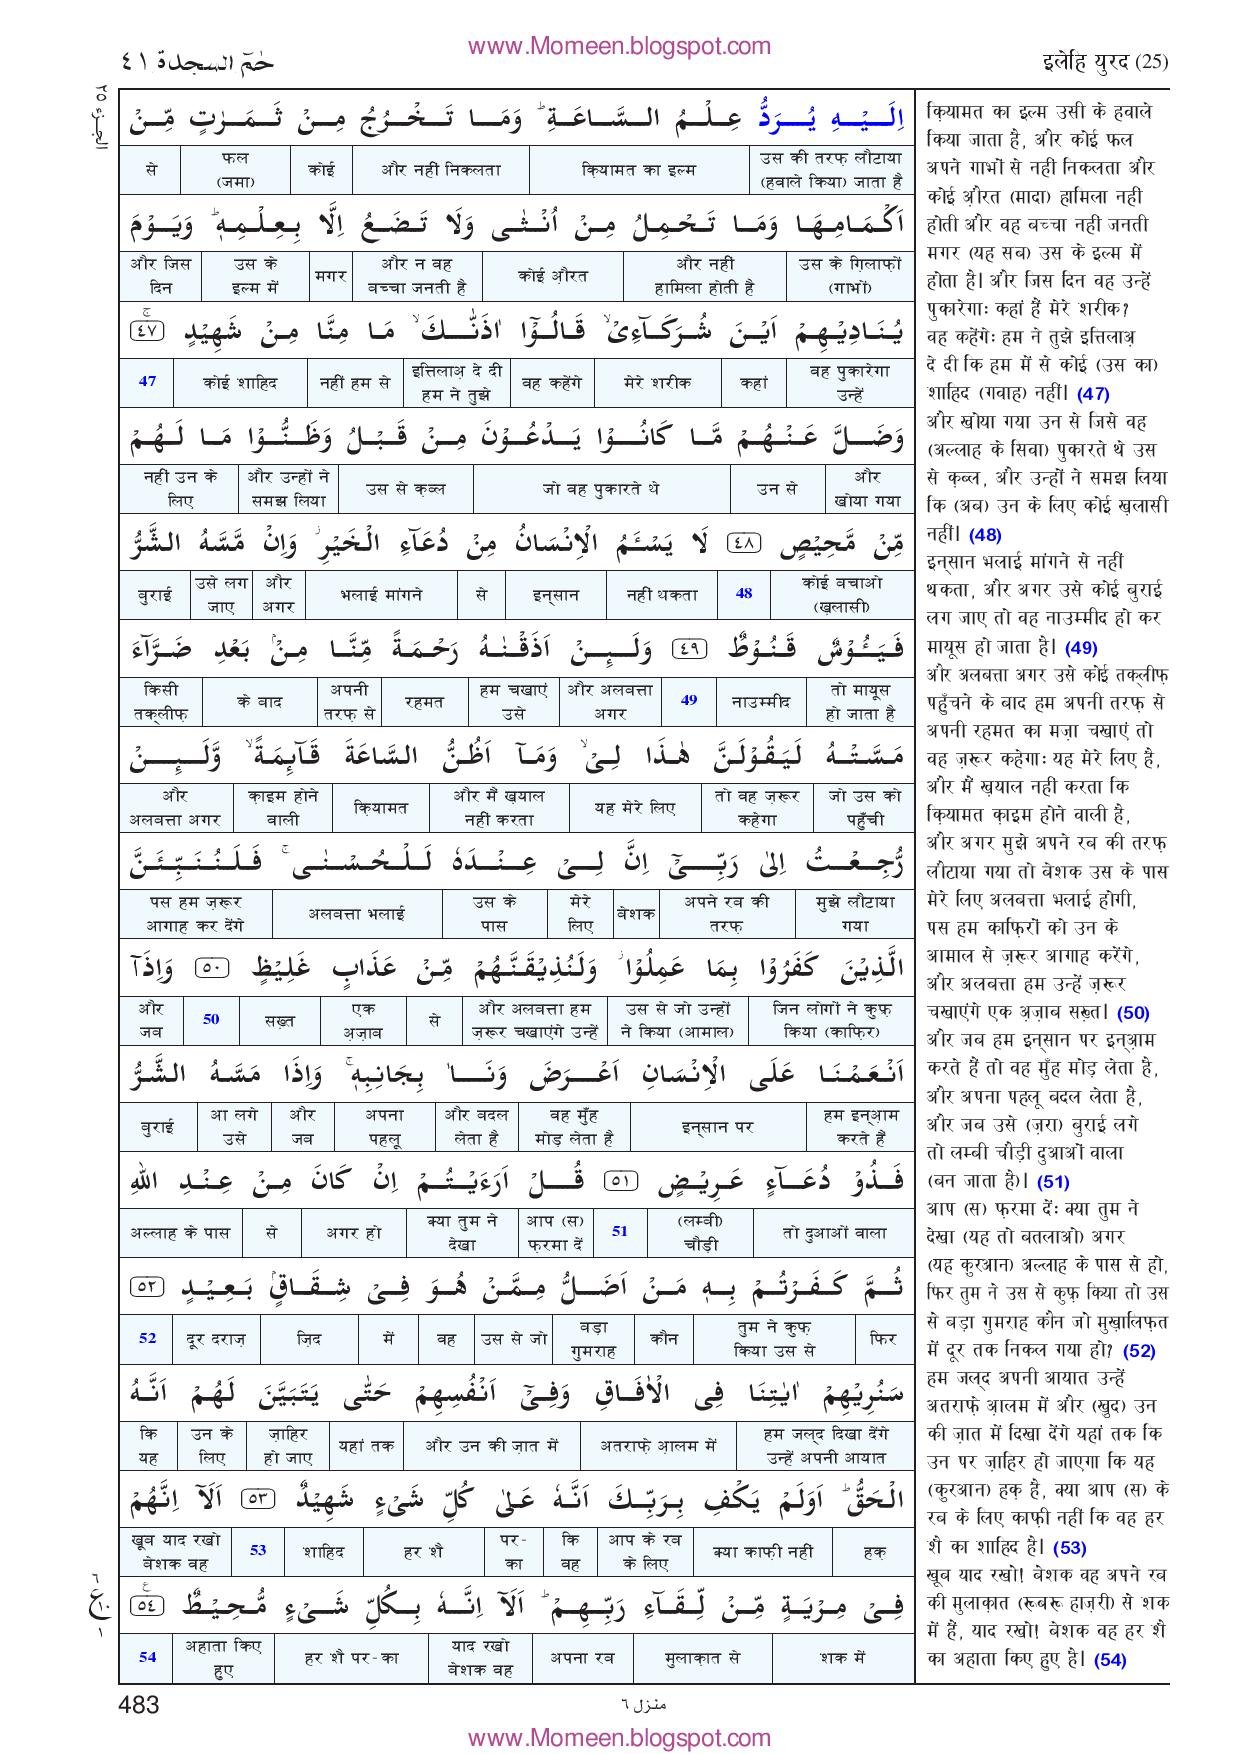 www.Momeen.blogspot.com
حٰمٓ السجدة ٤١
इलेहि युरद (25)
الجزء ٢٥
اِلَيْهِ يُرَدُّ عِلْمُ السَّاعَةِ ؕ وَمَا تَخْرُجُ مِنْ ثَمَرٰتٍ مِّنْ
उस की तरफ़ लौटाया (हवाले किया) जाता है | क़ियामत का इल्म | और नहीं निकलता | कोई | फल (जमा) | से
اَكْمَامِهَا وَمَا تَحْمِلُ مِنْ اُنْثٰى وَلَا تَضَعُ اِلَّا بِعِلْمِهٖ ؕ وَيَوْمَ
उस के ग़िलाफ़ों (गाभों) | और नहीं हामिला होती है | कोई औ़रत | और न वह बच्चा जनती है | मगर | उस के इल्म में | और जिस दिन
يُنَادِيْهِمْ اَيْنَ شُرَكَآءِىْ ۙ قَالُوْٓا اٰذَنّٰكَ ۙ مَا مِنَّا مِنْ شَهِيْدٍ ۚ ٤٧
वह पुकारेगा उन्हें | कहां | मेरे शरीक | वह कहेंगे | इत्तिलाअ़ दे दी हम ने तुझे | नहीं हम से | कोई शाहिद | 47
وَضَلَّ عَنْهُمْ مَّا كَانُوْا يَدْعُوْنَ مِنْ قَبْلُ وَظَنُّوْا مَا لَهُمْ
और खोया गया | उन से | जो वह पुकारते थे | उस से क़ब्ल | और उन्हों ने समझ लिया | नहीं उन के लिए
مِّنْ مَّحِيْصٍ ٤٨ لَا يَسْـَٔمُ الْاِنْسَانُ مِنْ دُعَآءِ الْخَيْرِ ؗ وَاِنْ مَّسَّهُ الشَّرُّ
कोई बचाओ (ख़लासी) | 48 | नहीं थकता | इन्सान | से | भलाई मांगने | और अगर | उसे लग जाए | बुराई
فَيَـُٔوْسٌ قَنُوْطٌ ٤٩ وَلَىِٕنْ اَذَقْنٰهُ رَحْمَةً مِّنَّا مِنْۢ بَعْدِ ضَرَّآءَ
तो मायूस हो जाता है | नाउम्मीद | 49 | और अलबत्ता अगर | हम चखाएं उसे | रहमत | अपनी तरफ़ से | के बाद | किसी तक्लीफ़
مَسَّتْهُ لَيَقُوْلَنَّ هٰذَا لِىْ ۙ وَمَآ اَظُنُّ السَّاعَةَ قَآىِٕمَةً ۙ وَّلَىِٕنْ
जो उस को पहुँची | तो वह ज़रूर कहेगा | यह मेरे लिए | और मैं ख़याल नहीं करता | क़ियामत | क़ाइम होने वाली | और अलबत्ता अगर
رُّجِعْتُ اِلٰى رَبِّىْٓ اِنَّ لِىْ عِنْدَهٗ لَلْحُسْنٰى ۚ فَلَنُنَبِّئَنَّ
मुझे लौटाया गया | अपने रब की तरफ़ | बेशक | मेरे लिए | उस के पास | अलबत्ता भलाई | पस हम ज़रूर आगाह कर देंगे
الَّذِيْنَ كَفَرُوْا بِمَا عَمِلُوْا ؗ وَلَنُذِيْقَنَّهُمْ مِّنْ عَذَابٍ غَلِيْظٍ ٥٠ وَاِذَآ
जिन लोगों ने कुफ़ किया (काफ़िर) | उस से जो उन्हों ने किया (आमाल) | और अलबत्ता हम ज़रूर चखाएंगे उन्हें | से | एक अ़ज़ाब | सख़्त | 50 | और जब
اَنْعَمْنَا عَلَى الْاِنْسَانِ اَعْرَضَ وَنَاٰ بِجَانِبِهٖ ۚ وَاِذَا مَسَّهُ الشَّرُّ
हम इन्आ़म करते हैं | इन्सान पर | वह मुँह मोड़ लेता है | और बदल लेता है | अपना पहलू | और जब | आ लगे उसे | बुराई
فَذُوْ دُعَآءٍ عَرِيْضٍ ٥١ قُلْ اَرَءَيْتُمْ اِنْ كَانَ مِنْ عِنْدِ اللّٰهِ
तो दुआओं वाला | (लम्बी) चौड़ी | 51 | आप (स) फ़रमा दें | क्या तुम ने देखा | अगर हो | से | अल्लाह के पास
ثُمَّ كَفَرْتُمْ بِهٖ مَنْ اَضَلُّ مِمَّنْ هُوَ فِىْ شِقَاقٍۢ بَعِيْدٍ ٥٢
फिर | तुम ने कुफ़ किया उस से | कौन | बड़ा गुमराह | उस से जो | वह | में | ज़िद | दूर दराज़ | 52
سَنُرِيْهِمْ اٰيٰتِنَا فِى الْاٰفَاقِ وَفِىْٓ اَنْفُسِهِمْ حَتّٰى يَتَبَيَّنَ لَهُمْ اَنَّهُ
हम जल्द दिखा देंगे उन्हें अपनी आयात | अतराफ़े आ़लम में | और उन की ज़ात में | यहां तक | ज़ाहिर हो जाए | उन के लिए | कि यह
الْحَقُّ ؕ اَوَلَمْ يَكْفِ بِرَبِّكَ اَنَّهٗ عَلٰى كُلِّ شَىْءٍ شَهِيْدٌ ٥٣ اَلَآ اِنَّهُمْ
हक़ | क्या काफ़ी नहीं | आप के रब के लिए | कि वह | पर-का | हर शै | शाहिद | 53 | खूब याद रखो बेशक वह
فِىْ مِرْيَةٍ مِّنْ لِّقَآءِ رَبِّهِمْ ؕ اَلَآ اِنَّهٗ بِكُلِّ شَىْءٍ مُّحِيْطٌ ٥٤
शक में | मुलाक़ात से | अपना रब | याद रखो बेशक वह | हर शै पर-का | अहाता किए हुए | 54
क़ियामत का इल्म उसी के हवाले
किया जाता है, और कोई फल
अपने गाभों से नहीं निकलता और
कोई औ़रत (मादा) हामिला नहीं
होती और वह बच्चा नहीं जनती
मगर (यह सब) उस के इल्म में
होता है। और जिस दिन वह उन्हें
पुकारेगाः कहां हैं मेरे शरीक?
वह कहेंगेः हम ने तुझे इत्तिलाअ़
दे दी कि हम में से कोई (उस का)
शाहिद (गवाह) नहीं। (47)
और खोया गया उन से जिसे वह
(अल्लाह के सिवा) पुकारते थे उस
से क़ब्ल, और उन्हों ने समझ लिया
कि (अब) उन के लिए कोई ख़लासी
नहीं। (48)
इन्सान भलाई मांगने से नहीं
थकता, और अगर उसे कोई बुराई
लग जाए तो वह नाउम्मीद हो कर
मायूस हो जाता है। (49)
और अलबत्ता अगर उसे कोई तक्लीफ़
पहुँचने के बाद हम अपनी तरफ़ से
अपनी रहमत का मज़ा चखाएं तो
वह ज़रूर कहेगाः यह मेरे लिए है,
और मैं ख़याल नहीं करता कि
क़ियामत क़ाइम होने वाली है,
और अगर मुझे अपने रब की तरफ़
लौटाया गया तो बेशक उस के पास
मेरे लिए अलबत्ता भलाई होगी,
पस हम काफ़िरों को उन के
आमाल से ज़रूर आगाह करेंगे,
और अलबत्ता हम उन्हें ज़रूर
चखाएंगे एक अ़ज़ाब सख़्त। (50)
और जब हम इन्सान पर इन्आ़म
करते हैं तो वह मुँह मोड़ लेता है,
और अपना पहलू बदल लेता है,
और जब उसे (ज़रा) बुराई लगे
तो लम्बी चौड़ी दुआओं वाला
(बन जाता है)। (51)
आप (स) फ़रमा देंः क्या तुम ने
देखा (यह तो बतलाओ) अगर
(यह कुरआन) अल्लाह के पास से हो,
फिर तुम ने उस से कुफ़ किया तो उस
से बड़ा गुमराह कौन जो मुख़ालिफ़त
में दूर तक निकल गया हो? (52)
हम जल्द अपनी आयात उन्हें
अतराफ़े आ़लम में और (खुद) उन
की ज़ात में दिखा देंगे यहां तक कि
उन पर ज़ाहिर हो जाएगा कि यह
(कुरआन) हक़ है, क्या आप (स) के
रब के लिए काफ़ी नहीं कि वह हर
शै का शाहिद है। (53)
खूब याद रखो! बेशक वह अपने रब
की मुलाक़ात (रूबरू हाज़री) से शक
में हैं, याद रखो! बेशक वह हर शै
का अहाता किए हुए है। (54)
٦
ع ١٠
١
483
منزل ٦
www.Momeen.blogspot.com